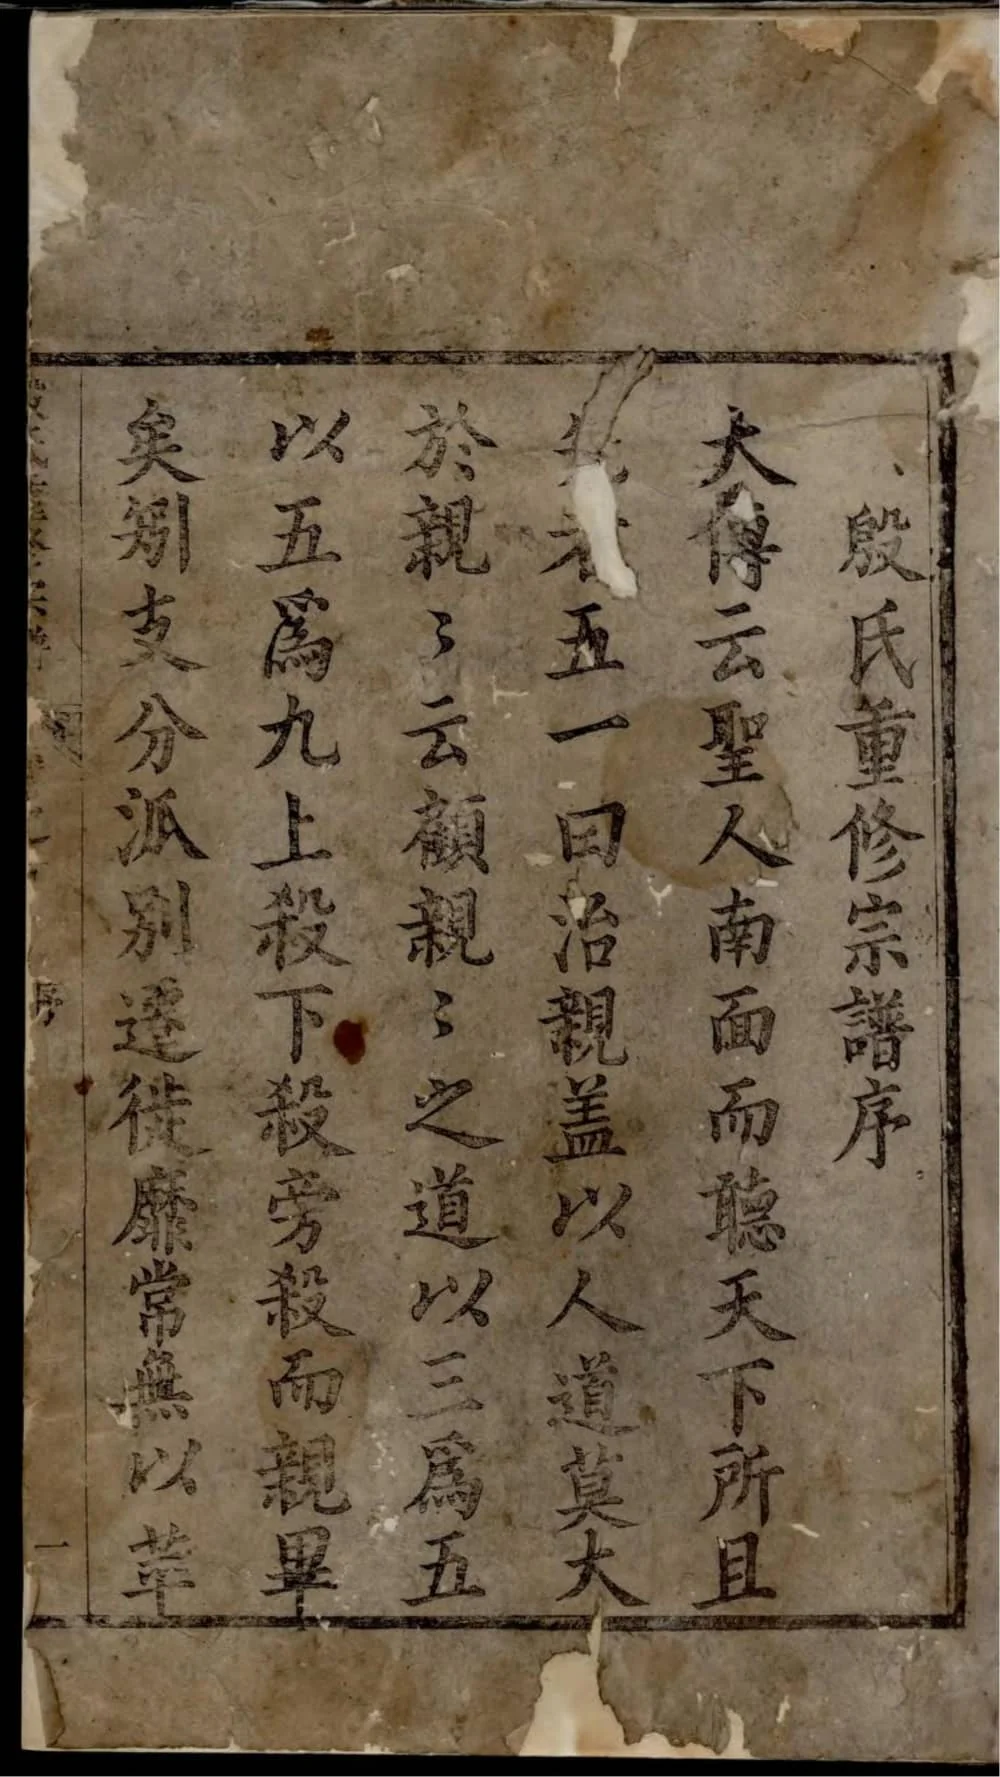 殷氏重修宗譜序
大傳云聖人南面而聽天下所且
先者五一曰治親盖以人道莫大
於親〻云顧親〻之道以三爲五
以五爲九上殺下殺旁殺而親畢
矣矧支分派别遷徙靡常無以萃
一